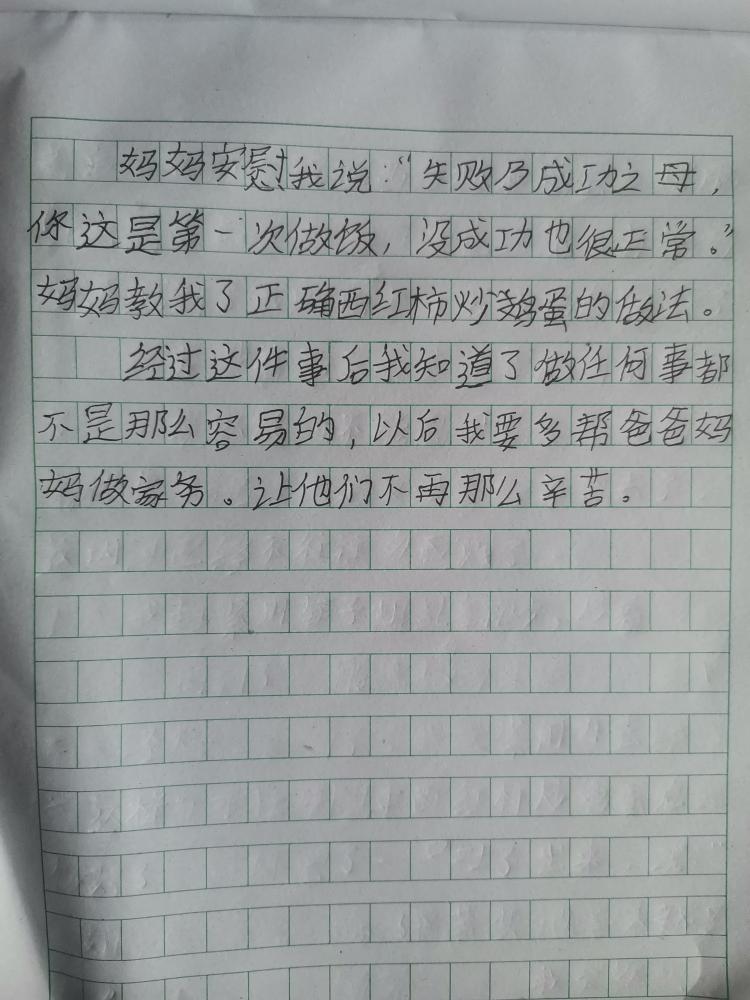 妈妈安慰我说：“失败乃成功之母，
你这是第一次做饭，没成功也很正常。”
妈妈教我了正确西红柿炒鸡蛋的做法。
经过这件事后我知道了做任何事都
不是那么容易的，以后我要多帮爸爸妈
妈做家务。让他们不再那么辛苦。